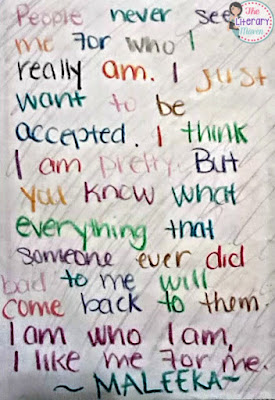 The
Literary
Maven
People never see
me for who I
really am. I just
want to be
accepted. I think
I am pretty. But
you know what
everything that
someone ever did
bad to me will
come back to them.
I am who I am,
I like me for me.
~ MALEEKA~